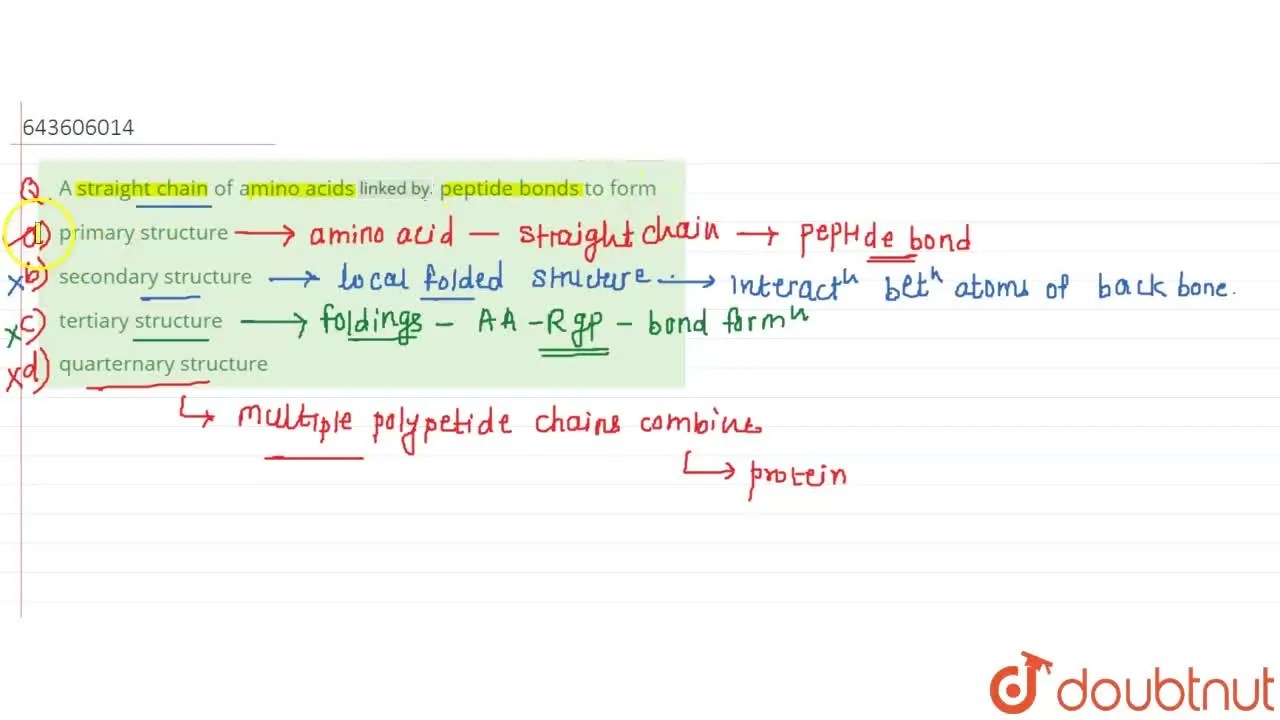 643606014
Q A straight chain of amino acids linked by. peptide bonds to form
a) primary structure → amino acid — straight chain → peptide bond
x b) secondary structure → local folded structure. → interactⁿ betⁿ atoms of back bone.
x c) tertiary structure → foldings - AA - R gp - bond formⁿ
x d) quarternary structure
↳ multiple polypetide chains combine
↳ protein
doubtnut